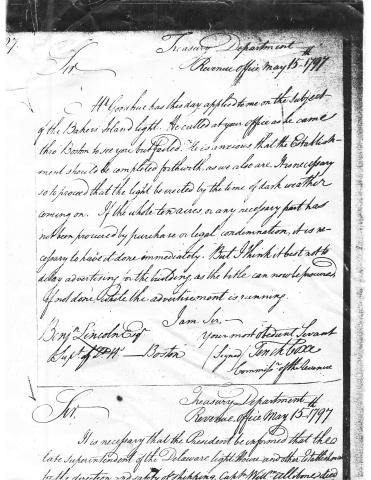 Treasury Department
Sir
Revenue Office May 15th 1797
Mr. Goodhue has this day applied to me on the subject
of the Bakers Island light. He called at your office as he came
thro Boston to see you but failed. He is anxious that the Establish-
ment should be completed forthwith, as we also are. It is necessary
so to proceed that the light be erected by the time of dark weather
coming on. If the whole ten acres, or any necessary part has
not been procured by purchase or legal condemnation, it is ne-
cessary to have it done immediately. But I think it best not to
delay advertising for the building, as the title can now be procured
if not done, while the advertisement is running.
I am Sir
Benjn Lincoln Esqr
Your most Obedient Servant
Supt of — Boston
Signed Tench Coxe
Commissr of the Revenue
Treasury Department
Sir.
Revenue Office May 15th 1797
It is necessary that the President be informed that the
late superintendent of the Delaware light House and other Establishments
for the direction and safety of shipping, Capt. Willm Allibone died